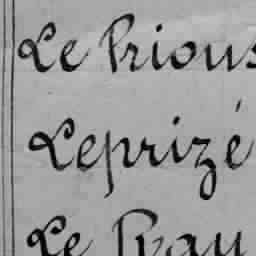 Le Prious
Leprizé
Le Ray